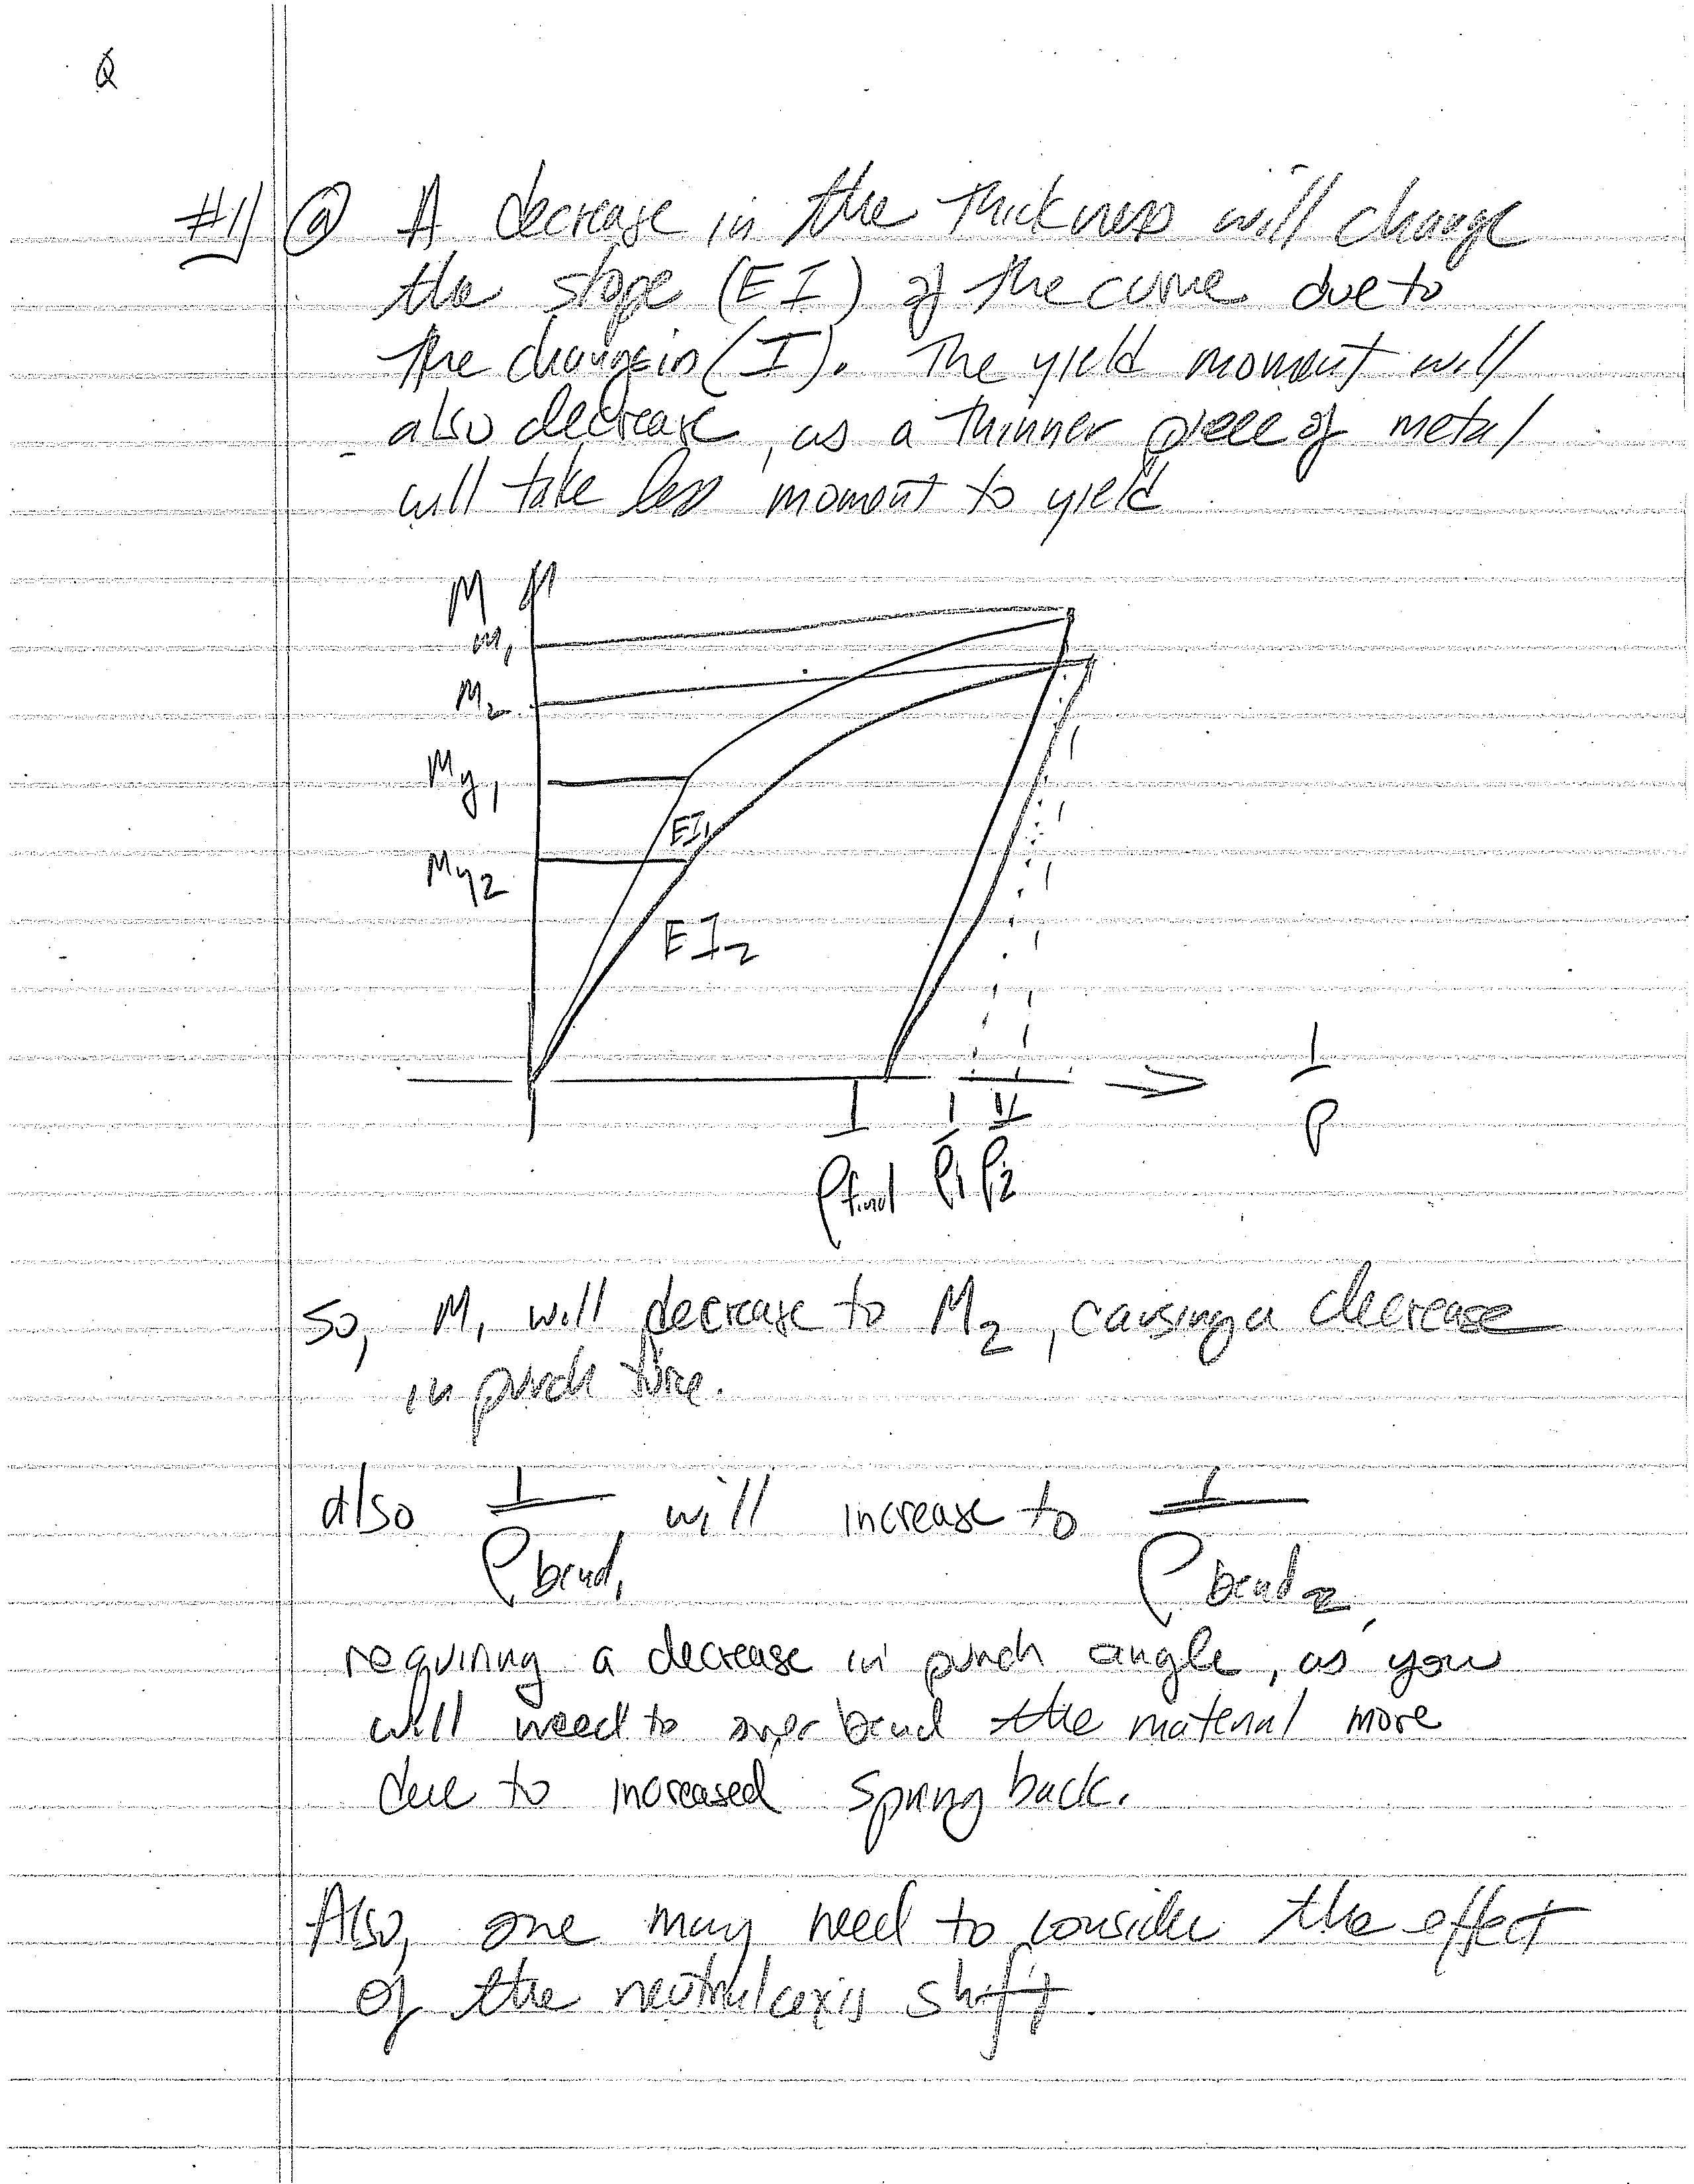 #1) (a) A decrease in the thickness will change
the slope (EI) of the curve due to
the change in (I). The yield moment will
also decrease, as a thinner piece of metal
will take less moment to yield
M
M1
M2
My1
EI1
My2
EI2
1
ρ
1
ρfinal
1
ρ1
1
ρ2
So, M1 will decrease to M2, causing a decrease
in punch force.
also 1/ρbend1 will increase to 1/ρbend2,
requiring a decrease in punch angle, as you
will need to over bend the material more
due to increased spring back.
Also, one may need to consider the effect
of the neutral axis shift.